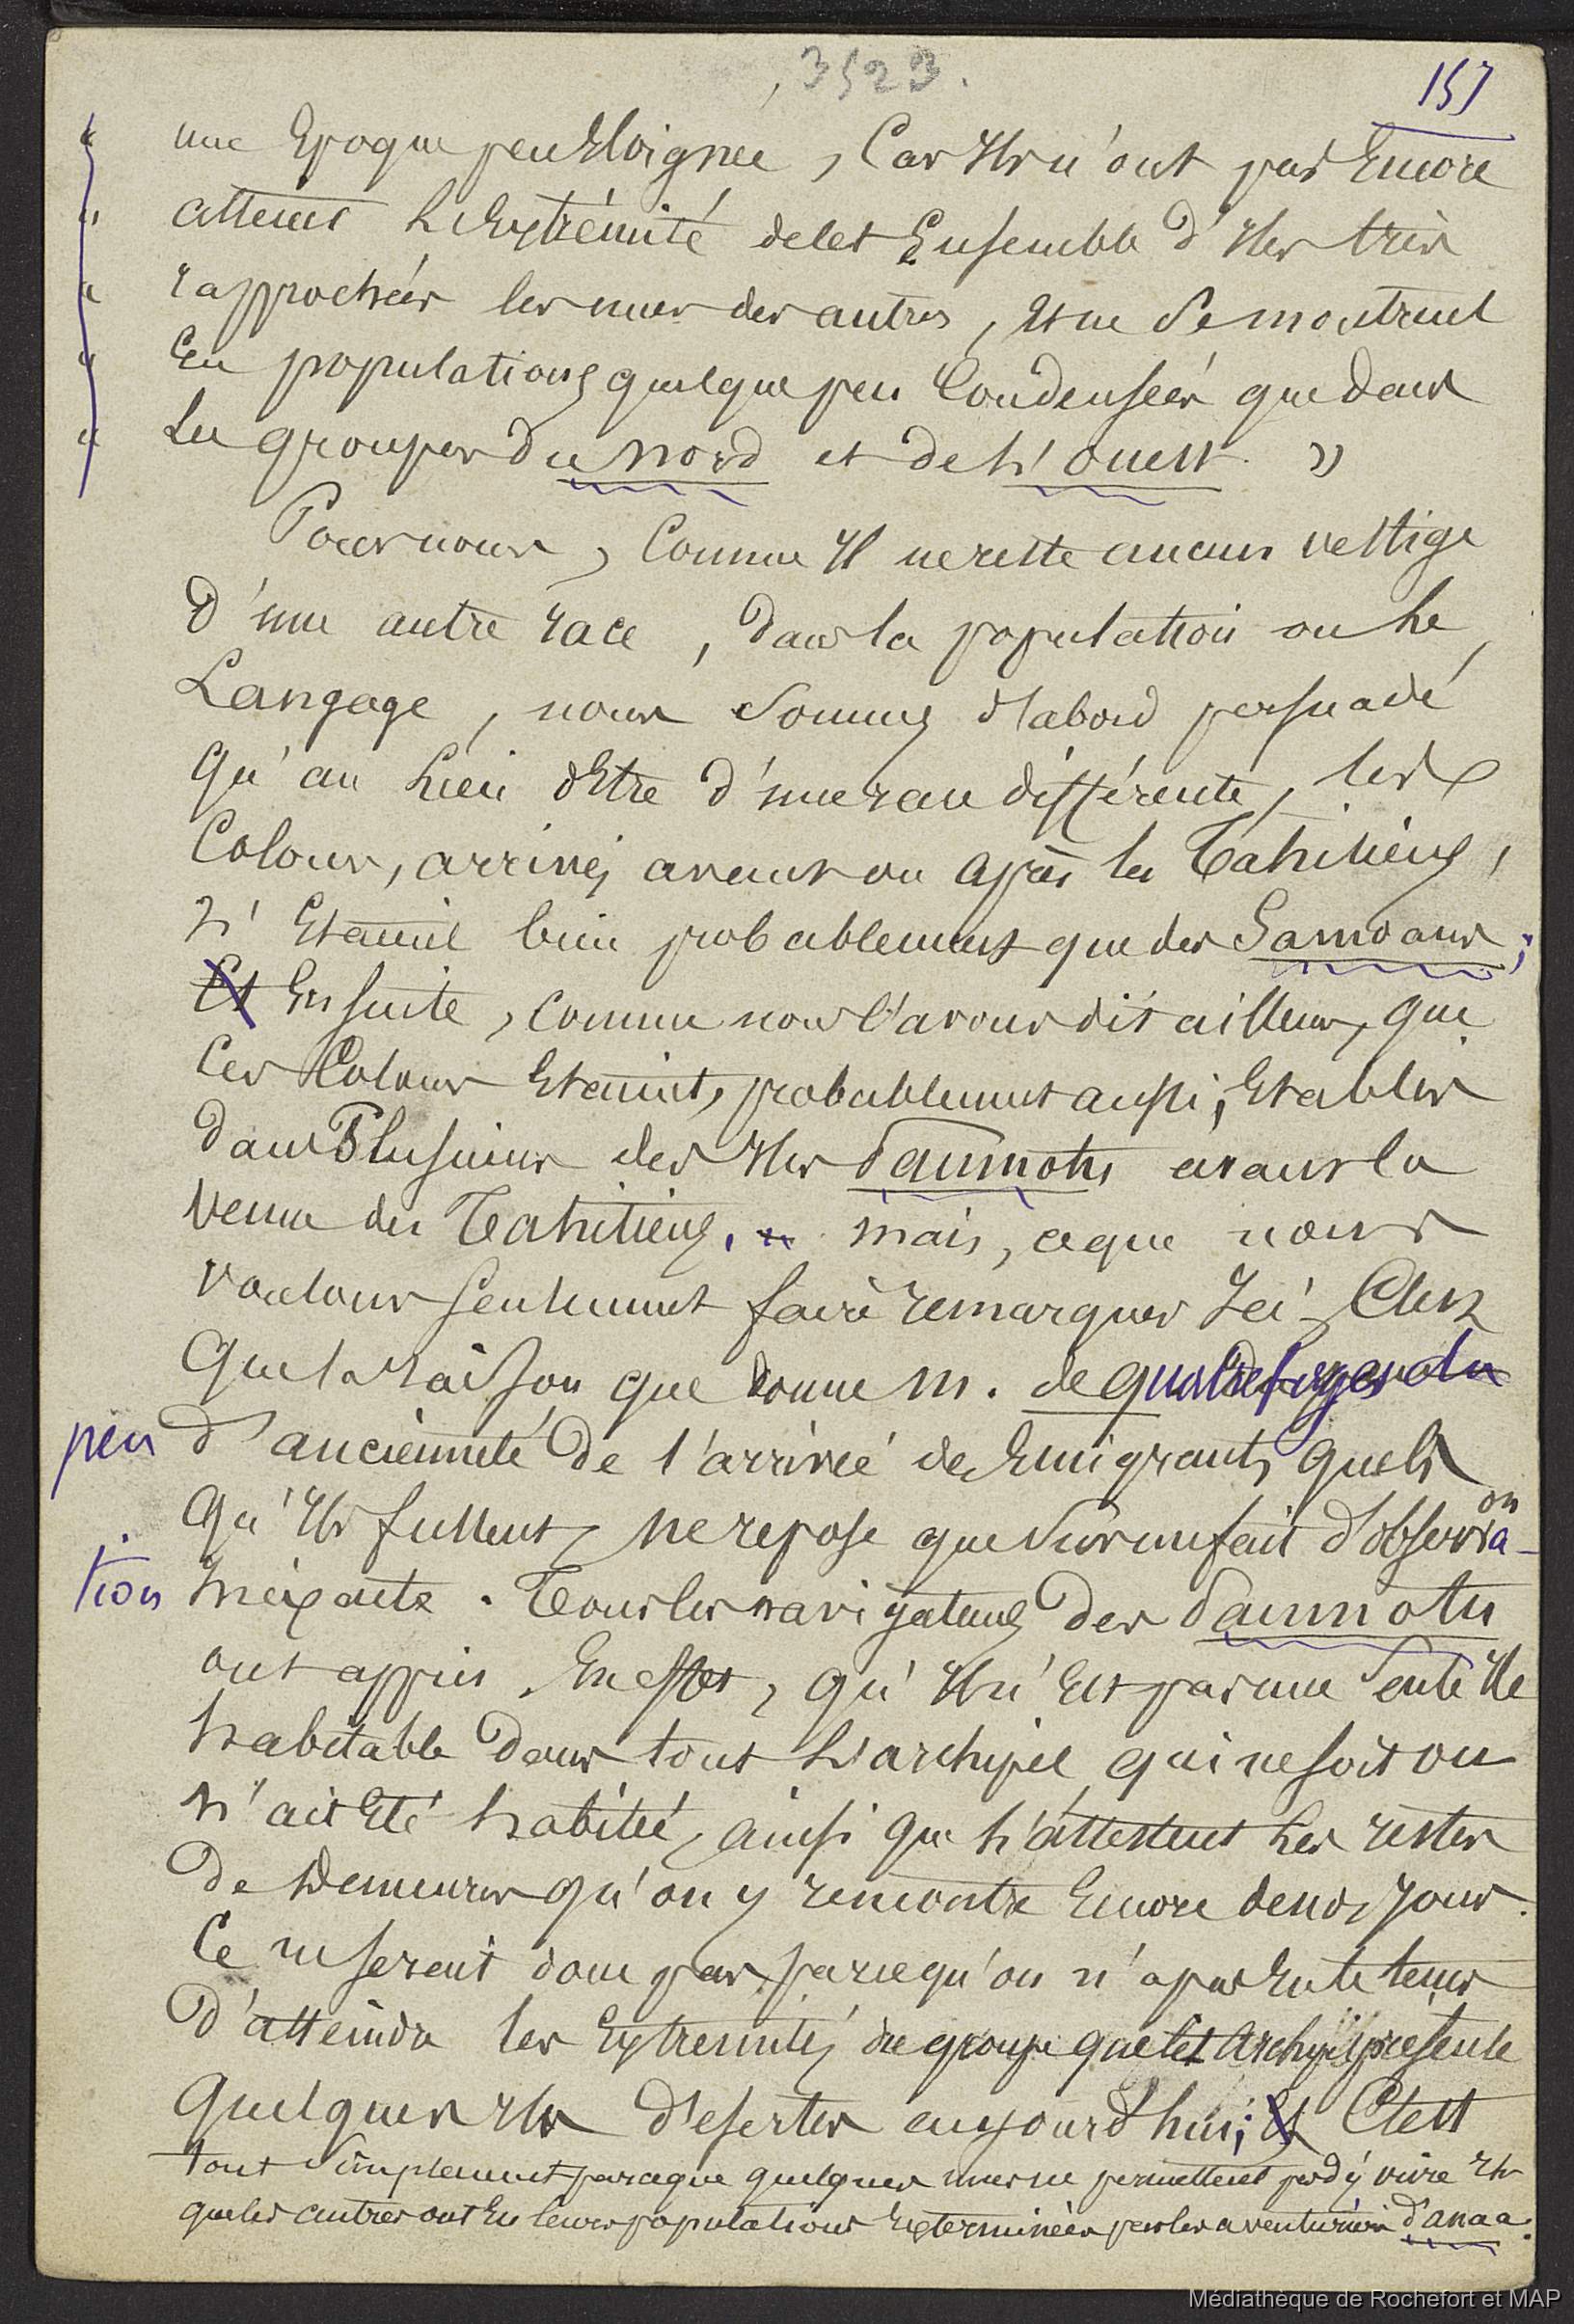 3523.
157
" une Epoque peu Eloignée, Car Ils n'ont pas Encore
" atteint L'Extrémité de cet Ensemble d'Iles très
" rapprochées les unes des autres, Et ne se montrent
" En populations quelque peu Condensées que dans
" Les groupes du Nord et de L'Ouest. »
Pour nous, Comme Il ne reste aucun vestige
d'une autre race, dans la population ou le
Langage, nous Sommes d'abord persuadé
qu'au Lieu d'Etre d'une race différente, les
Colons, arrivés avant ou après les Tahitiens,
n'Etaient bien probablement que des Samoans;
Et Ensuite, comme nous l'avons dit ailleurs, que
Ces Colons Etaient, probablement aussi, Etablis
dans Plusieurs des Iles Paumotu avant la
venue des Tahitiens. mais, ce que nous
voulons seulement faire remarquer Ici, C'est
que la raison que donne M. de quatrefages du
peu d'ancienneté de l'arrivée des Emigrants, quels
qu'Ils fussent, ne repose que sur un fait d'observa-
tion Inéxacte. Tous les navigateurs des Paumotu
ont appris, En effet, qu'Il n'Est pas une seule Ile
habitable dans tout L'archipel qui ne soit ou
n'ait Eté habitée, ainsi que L'attestent Les restes
de Demeures qu'on y rencontre Encore de nos Jours.
Ce ne serait donc pas parce qu'on n'a pas Eu le temps
d'atteindre les Extremités du groupe que cet Archipel présente
quelques Iles désertes aujourd'hui; Et C'est
tout simplement parceque quelques unes ne permettent pas d'y vivre Et
que les autres ont Eu leurs populations Exterminées par les aventuriers d'anaa.
Médiathèque de Rochefort et MAP